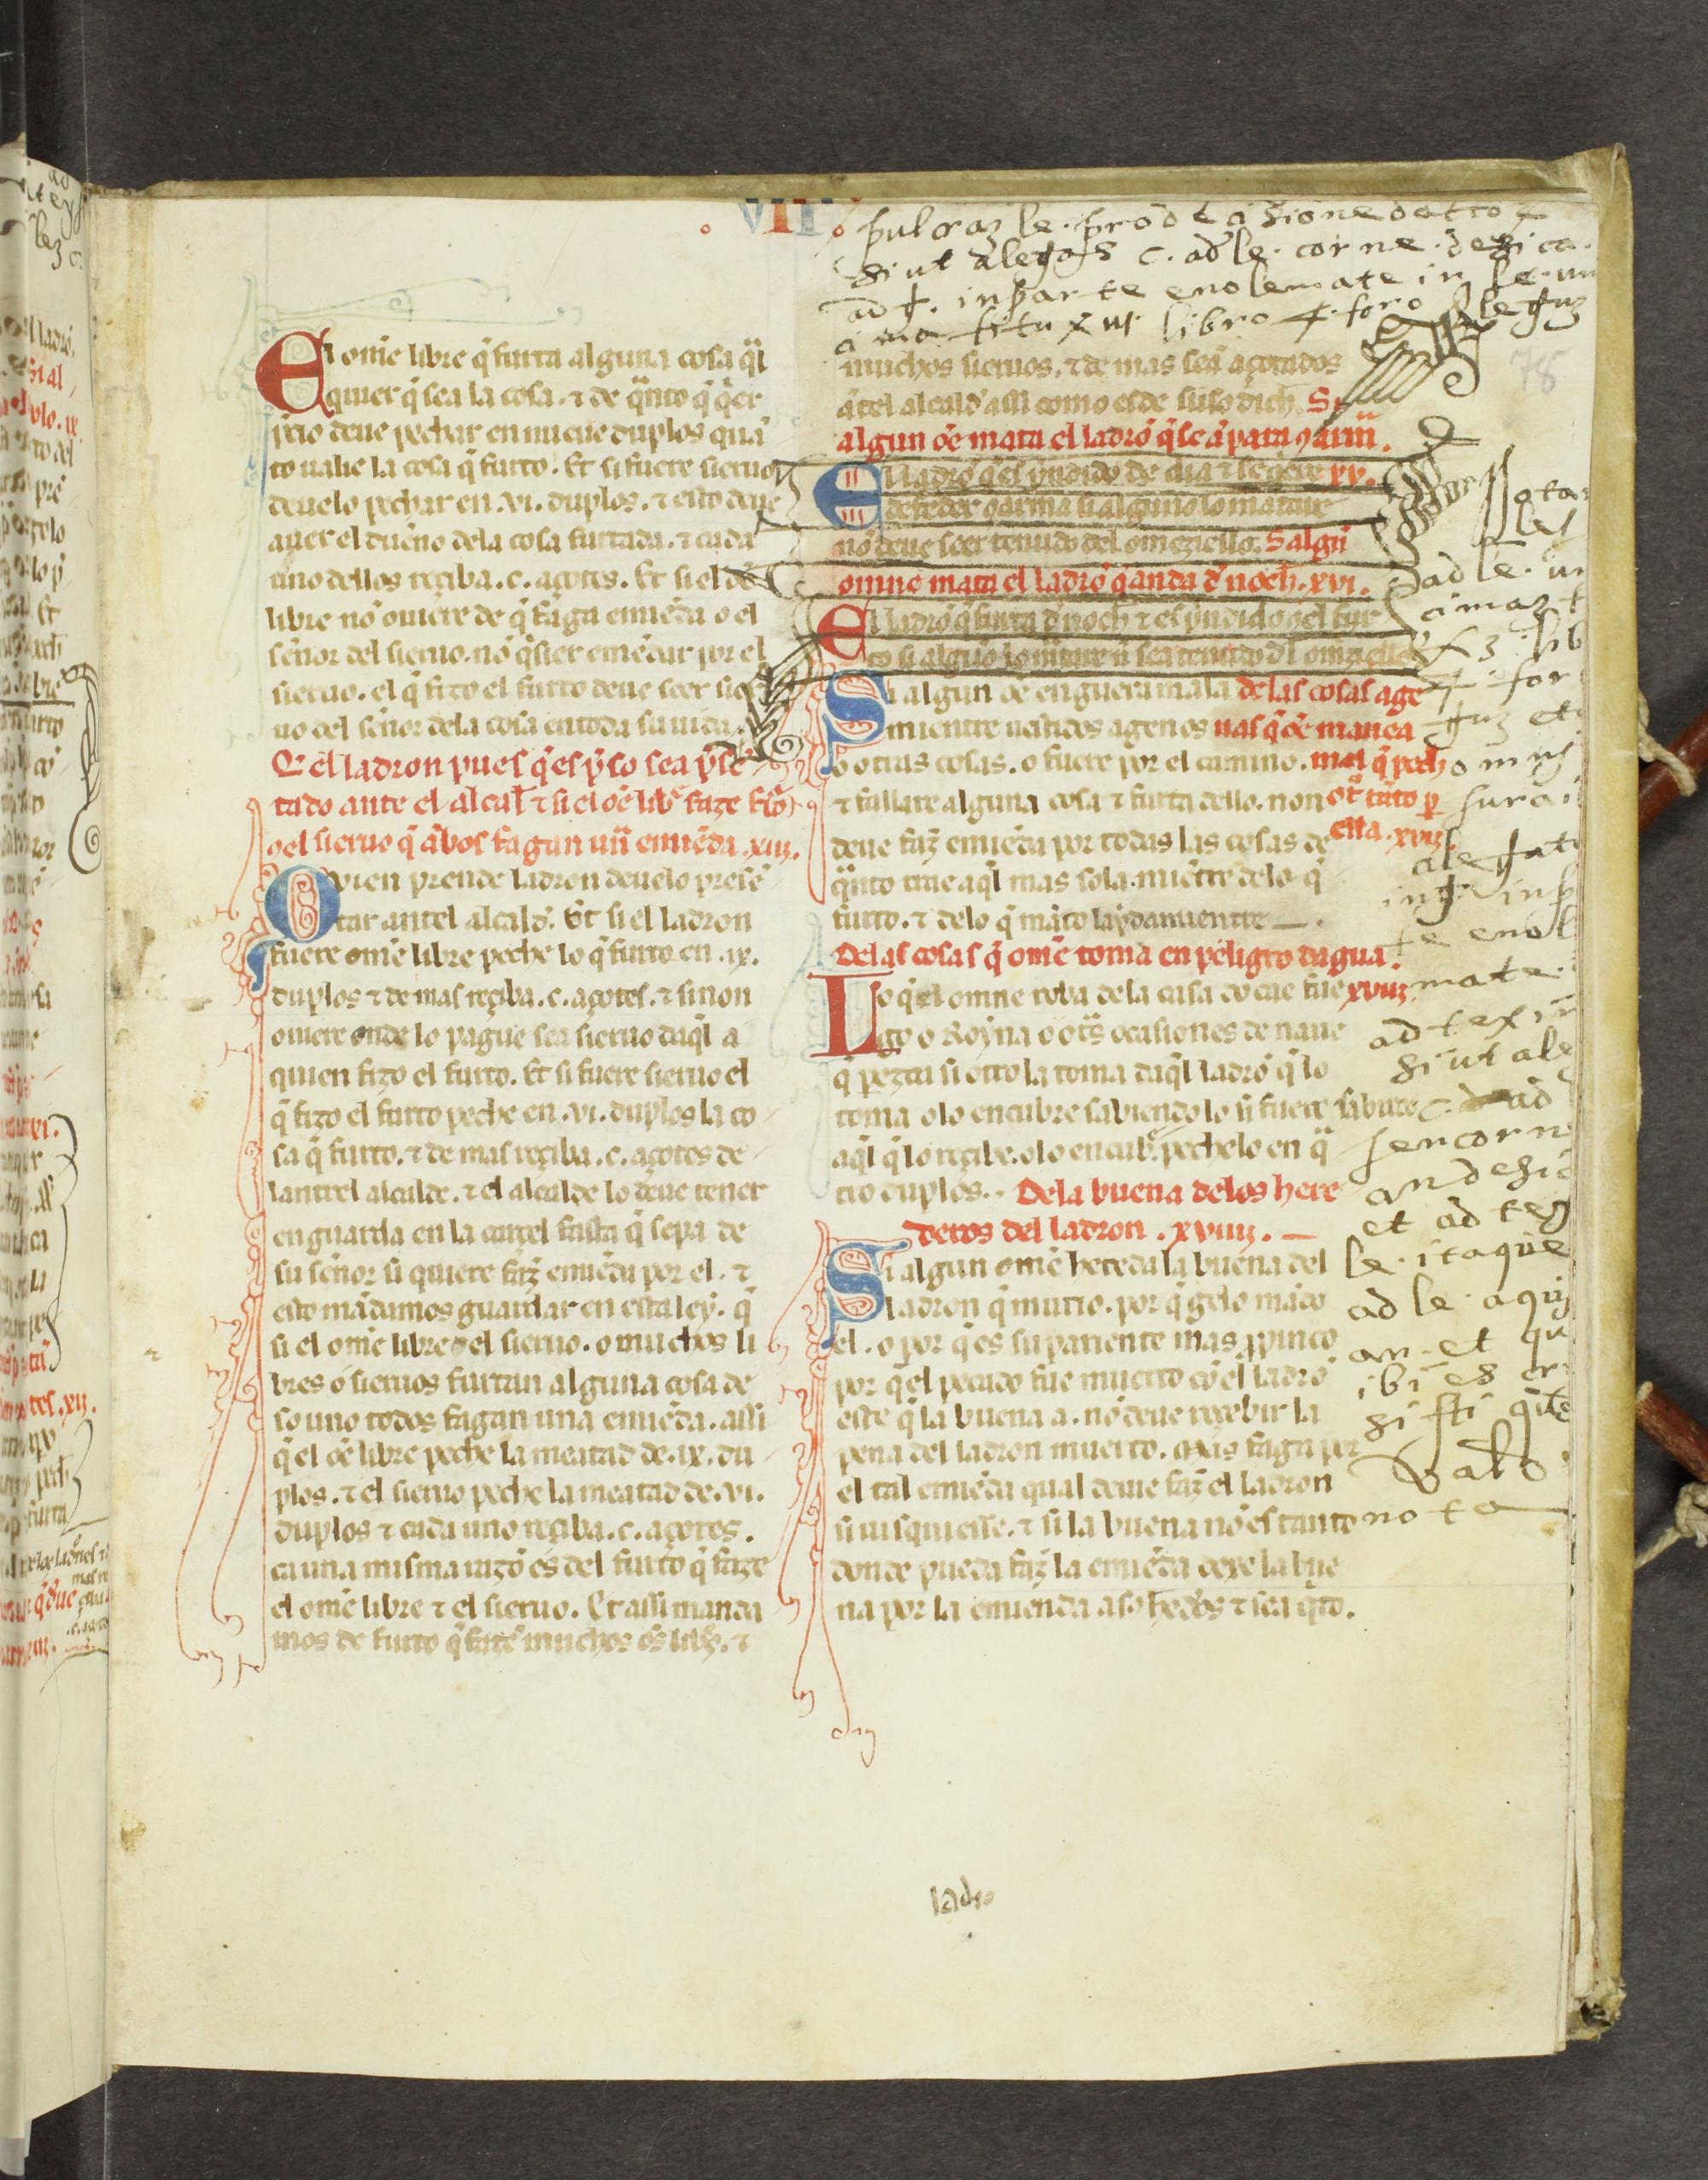 . VII .
El om̃e libre q̃ furta alguna cosa q̃l
quier q̃ sea la cosa. ⁊ de q̃nto q̃ q̃er
p̃cio deue pechar en nueue duplos quã
to ualie la cosa q̃ furto. Et si fuere sieruo
deuelo pechar en .vi. duplos. ⁊ esto deue
auer el dueño dela cosa furtada. ⁊ cada
uno dellos reçiba .c. açotes. Et si el õe
libre nõ ouiere de q̃ faga emiẽda o el
señor del sieruo. nõ q̃sier emẽdar por el
sieruo. el q̃ fizo el furto deue seer sier
uo del señor dela cosa en toda su uida.
Q̃ el ladron pues q̃ es p̃so sea p̃sẽ
tado ante el alcal̃ ⁊ si el oẽ lib̃ faze furto
o el sieruo q̃ ãbos fagan uñ emiẽda .xiii.
Quien prende ladron deuelo presẽ
tar antel alcald̃. Et si el ladron
fuere om̃e libre peche lo q̃ furto en .ix.
duplos ⁊ de mas reçiba .c. açotes. ⁊ si non
ouiere onde lo pague sea sieruo daq̃l a
quien fizo el furto. Et si fuere sieruo el
q̃ fizo el furto peche en .vi. duplos la co
sa q̃ furto. ⁊ de mas reçiba .c. açotes de
lantrel alcalde. ⁊ el alcalde lo deue tener
en guarda en la carçel fasta q̃ sepa de
su señor si quiere faz̃ emiẽda por el. ⁊
esto mãdamos guardar en esta ley. q̃
si el om̃e libre o el sieruo. o muchos li
bres o sieruos furtan alguna cosa de
so uno todos fagan una emiẽda. assi
q̃ el oẽ libre peche la meatad de .ix. du
plos. ⁊ el sieruo peche la meatad de .vi.
duplos ⁊ cada uno reçiba .c. açotes.
ca una misma razõ es del furto q̃ faze
el om̃e libre ⁊ el sieruo. Et assi manda
mos de furto q̃ fazẽ muchos oẽs lib̃s. ⁊
pulcraz le. pro
siut alegas c. ad le. corne
ad. in parte enolemate in le. un
libro 4. foro legum
78
muchos sieruos. ⁊ de mas seã açotados
ãtel alcald̃ assi como es de suso dich̃. Si
algun oẽ mata el ladrõ q̃ se ãpara
El ladrõ q̃ es p̃ndido de dia ⁊ se q̃ere xv.
defẽder õ arma si alguno lo matare
nõ deue seer tenudo del omeziello. Si algũ
omne mata el ladrõ q̃ anda d̃ noch̃. xvi.
El ladrõ q̃ furta d̃ noch̃ ⁊ es p̃ndido õ el fur
to si alguõ lo matare ñ sea tenudo d̃l omeziello
Si algun oẽ en guerra mala delas cosas age
mientre uestidos agenos nas q̃ oẽ manca
o otras cosas. o fuere por el camino. mal q̃ pech
⁊ fallare alguna cosa ⁊ furta dello. non ot̃ tãto p̃
deue faz̃ emiẽda por todas las cosas de ella .xvii.
q̃nto trae aq̃l mas sola mientre delo q̃
furto. ⁊ delo q̃ mãco laydamientre
Delas cosas q̃ om̃e toma en peligro dagua.
Lo q̃ el omne roba dela casa do cae fue xviii
go o Royna o ot̃s ocasiones de naue
q̃ pezca si otro la toma daq̃l ladrõ q̃ lo
toma o lo encubre sabiendo lo si fuere sabudo
aq̃l q̃ lo reçibe. o lo encub̃. pechelo en q̃
tro duplos. Dela buena delos here
deros del ladron .xviiii.
Si algun om̃e hereda la buena del
ladron q̃ murio. por q̃ gelo mãdo
el. o por q̃ es su pariente mas p̃pinco
por q̃ el pecado fue muerto cõ el ladrõ
este q̃ la buena a. nõ deue reçebir la
pena del ladron muerto. Mas faga por
el tal emiẽda qual deuie faz̃ el ladron
si uisquiesse. ⁊ si la buena nõ es tanto
donde pueda faz̃ la emiẽda dexe la bue
na por la emienda a so hedos ⁊ sea q̃to.
nota
ley
ad le. un
cimaz
lib
4. for
guz et
omnis
alegat
te enol
mate.
ad tex
siut aleg
c. ad
et ad reg
le. itaque
ad le. aqui
an. et qu
ibi es
nota
ladro